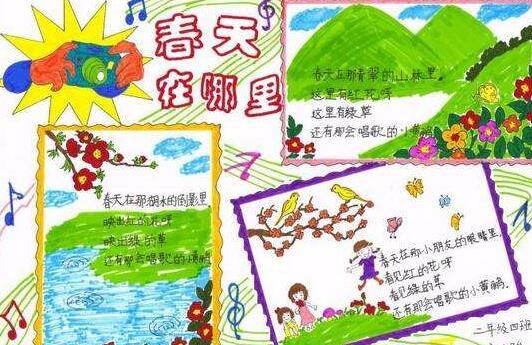 春天
在哪里
春天在那青翠的山林里。
这里有红花呀
这里有绿草
还有那会唱歌的小黄鹂
春天在那湖水的倒影里
映出红的花呀
映出绿的草
还有那会唱歌的小黄鹂
春天在那小朋友的眼睛里,
看见红的花呀
看见绿的草
还有那会唱歌的小黄鹂.
二年级四班